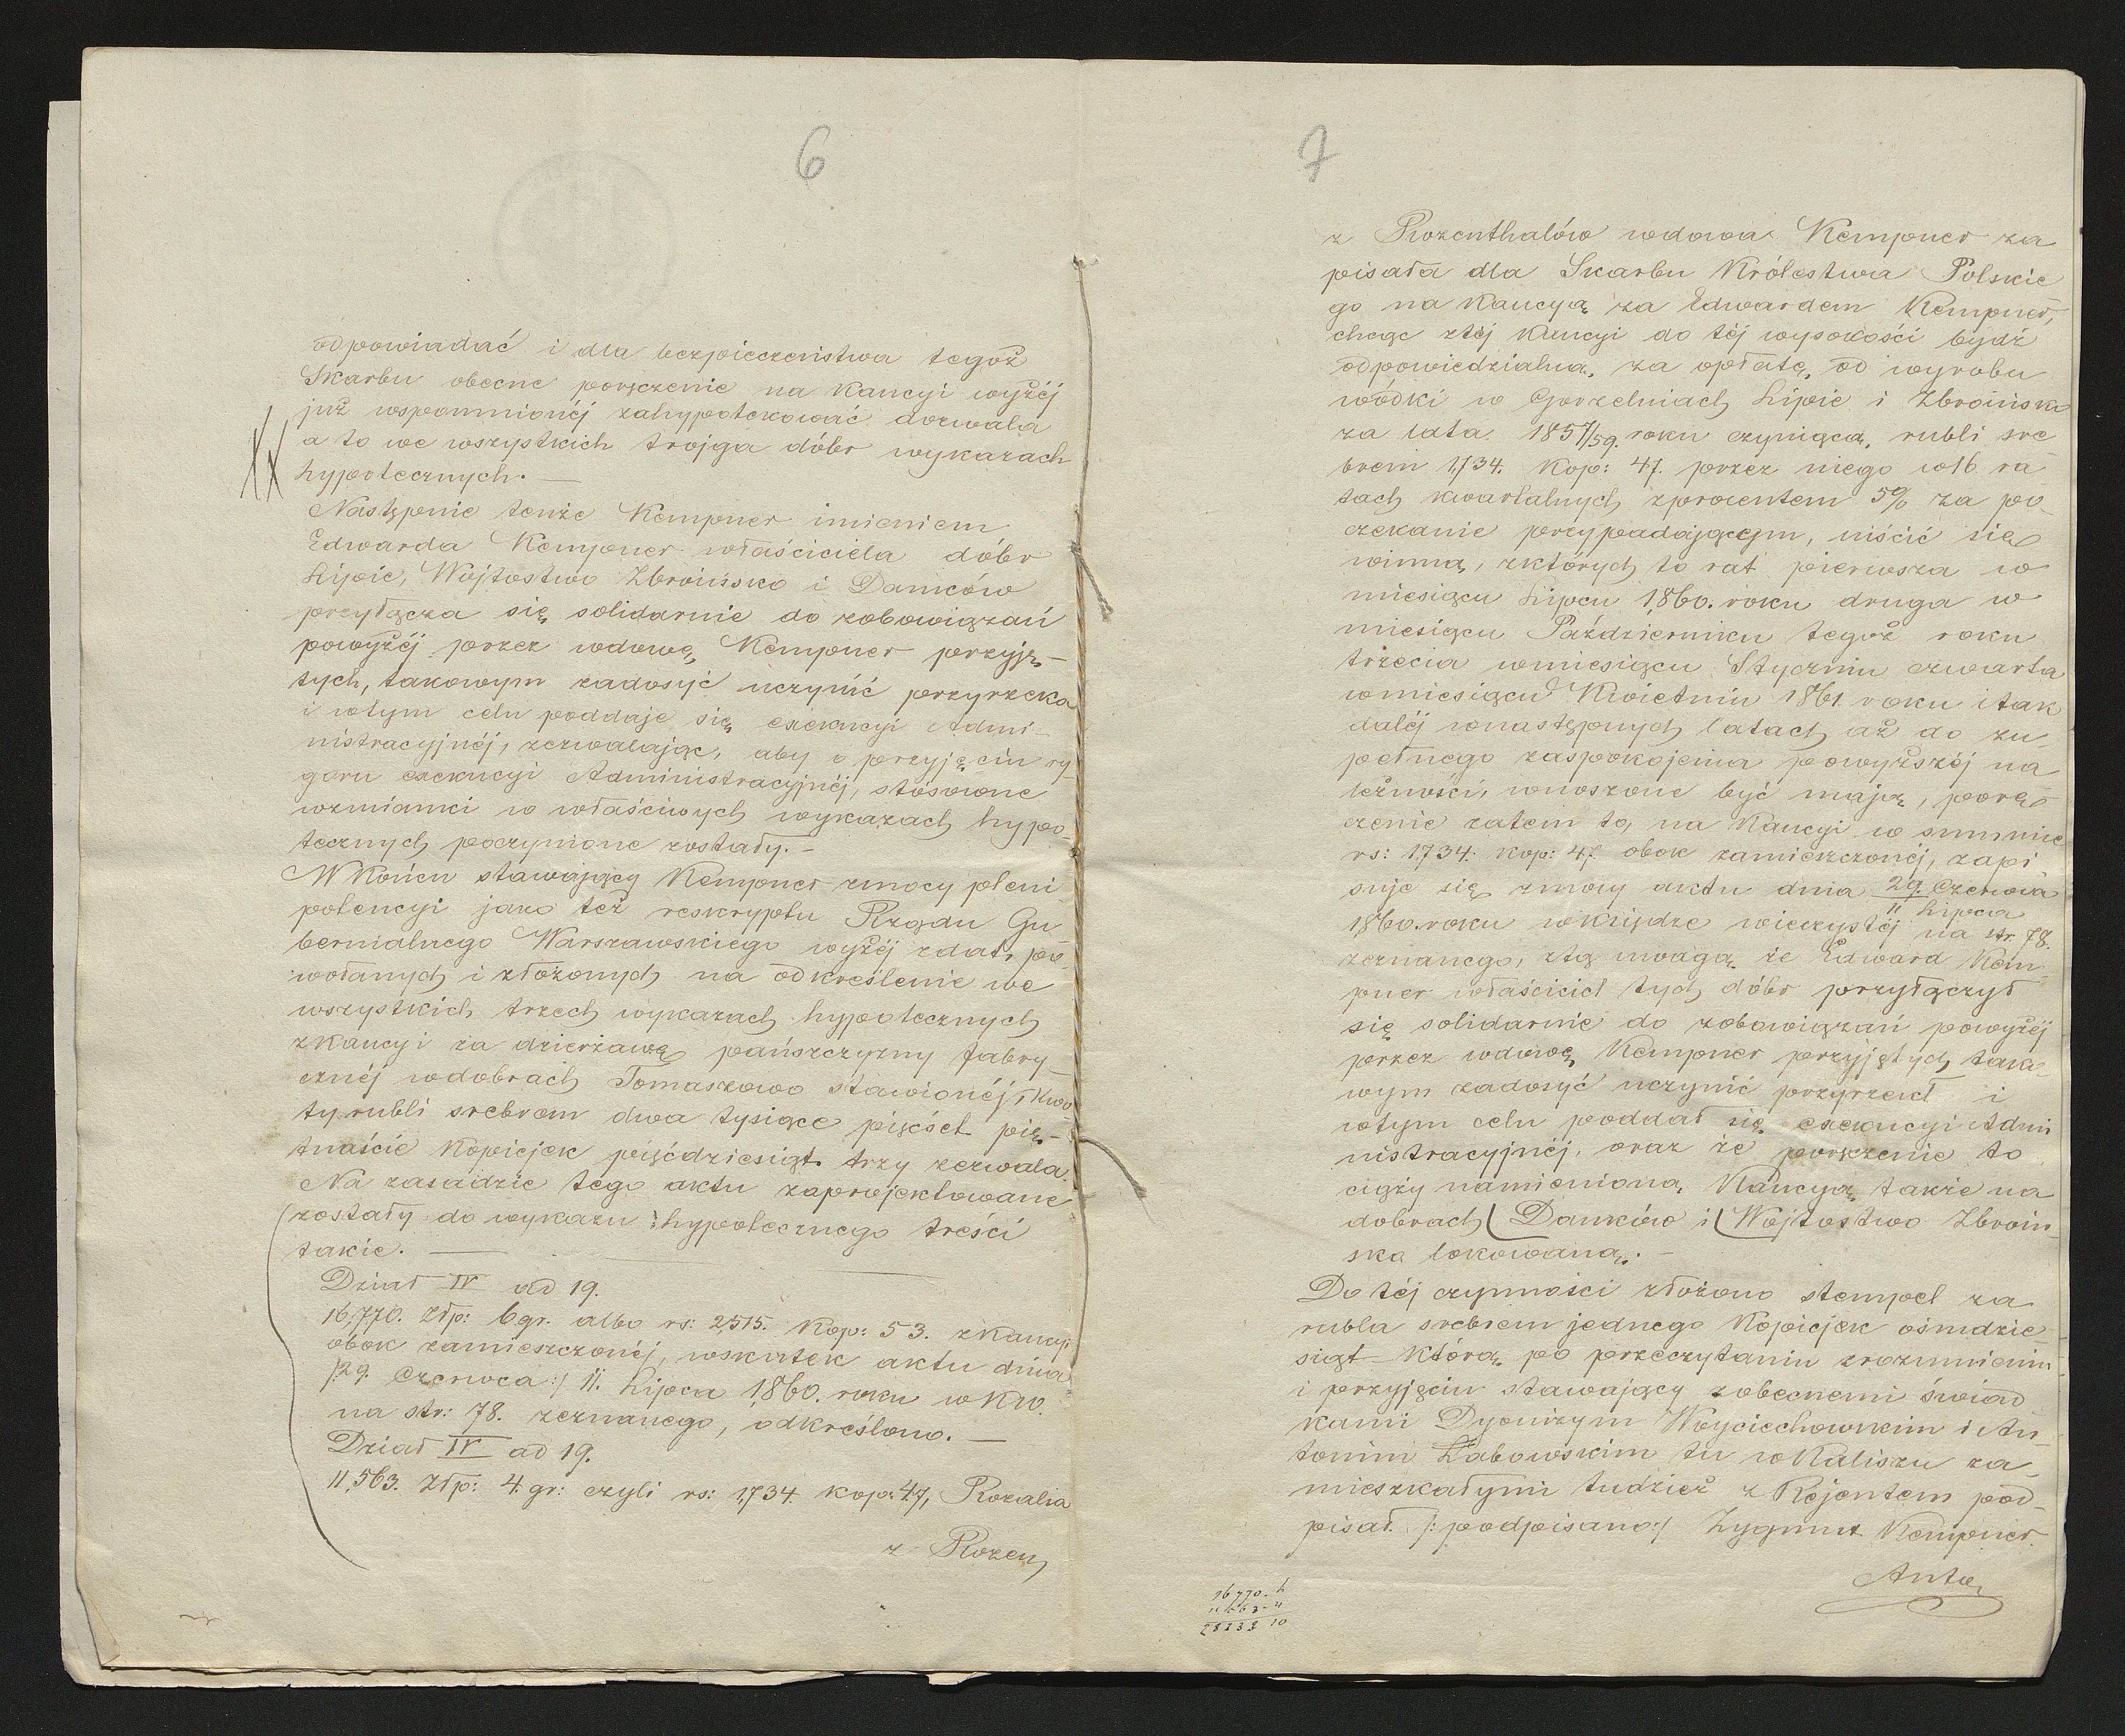 6
odpowiadać i dla bezpieczeństwa tegoż
Skarbu obecne poręczenie na Kaucyi wyżéj
już wspomnionéj zahypotekować dozwala
a to we wszystkich trojga dóbr wykazach
hypotecznych. —
Następnie tenże Kempner imieniem
Edwarda Kempner właściciela dóbr
Lipie, Wójtostwo Zbroińsko i Danków
przyłącza się solidarnie do zobowiązań
powyżéj przez wdowę Kempner przyję-
tych, takowym zadosyć uczynić przyrzeka
i wtym celu poddaje się exekucyi Admi-
nistracyjnéj, zezwalając, aby o przyjęciu ry-
goru exekucyi Administracyjnéj, stósowne
wzmianki w właściwych wykazach hypo-
tecznych poczynione zostały. —
W Końcu stawający Kempner zmocy pleni
potencyi jako też reskryptu Rządu Gu
bernialnego Warszawskiego wyżéj zdat, po-
wołanych i złożonych na odkreślenie we
wszystkich trzech wykazach hypotecznych
zkaucyi za dzierżawę pańszczyzny fabry-
cznéj wdobrach Tomaszowo stawionéj, Kwo
ty rubli srebrem dwa tysiące pięćset pię-
tnaście Kopiejek pięćdziesiąt trzy zezwala.
Na zasadzie tego aktu zaprojektowane
zostały do wykazu hypotecznego treści
takie. —
Dział IV ad 19.
16,770. Złp: 6 gr. albo rs: 2,515. Kop: 53. zkaucyi
obok zamieszczonéj, wskutek aktu dnia
/29. Czerwca:/ 11. Lipca 1,860. roku w KW.
na str: 78. zeznanego, odkreślono. —
Dział IV ad 19.
11,563. Złp: 4. gr: czyli rs: 1,734. kop: 47, Rozalia
z Rozen
7
z Rozenthalów wdowa Kempner za
pisała dla Skarbu Królestwa Polskie
go na Kaucyą za Edwardem Kempner,
chcąc ztéj Kaucyi do téj wysokości bydź
odpowiedzialną, za opłatę od wyrobu
wódki w Gorzelniach Lipie i Zbroińsko
za lata 1857/59. roku czyniącą, rubli sre
brem 1,734. Kop: 47. przez niego w16 ra
tach kwartalnych zprocentem 5% za po-
czekanie przypadającym, uiścić się
winną, zktórych to rat pierwsza w
miesiącu Lipcu 1,860. roku druga w
miesiącu Październiku tegoż roku
trzecia wmiesiącu Styczniu czwarta
wmiesiącu Kwietniu 1861 roku i tak
daléj wnastępnych latach aż do zu-
pełnego zaspokojenia powyższéj na
leżności, wnoszone być mają, porę-
czenie zatem to, na Kaucyi w summie
rs: 1,734. kop: 47. obok zamieszczonéj, zapi
suje się zmocy aktu dnia 29. Czerwca
11 Lipca
1,860. roku wKsiędze wieczystéj na str. 78.
zeznanego, ztą uwagą że Edward Kem-
pner właściciel tych dóbr przyłączył
się solidarnie do zobowiązań powyżéj
przez wdowę Kempner przyjętych tako-
wym zadosyć uczynić przyrzekł i
wtym celu poddał się exekucyi Admi
nistracyjnéj, oraz że poręczenie to
ciąży namienioną Kaucyą także na
dobrach Danków i Wójtostwo Zbroin-
ska lokowaną. —
Do téj czynności złożono stempel za
rubla srebrem jednego Kopiejek ośmdzie-
siąt — którą po przeczytaniu zrozumieniu
i przyjęciu stawający zobecnemi świad
kami Dyonizym Woyciechowskim i An-
tonim Łabowskim tu wKaliszu za-
mieszkałymi tudzież z Rejentem pod-
pisał. /: podpisano:/ Zygmunt Kempner.
Anto
16770-6
11563-4
28333 10